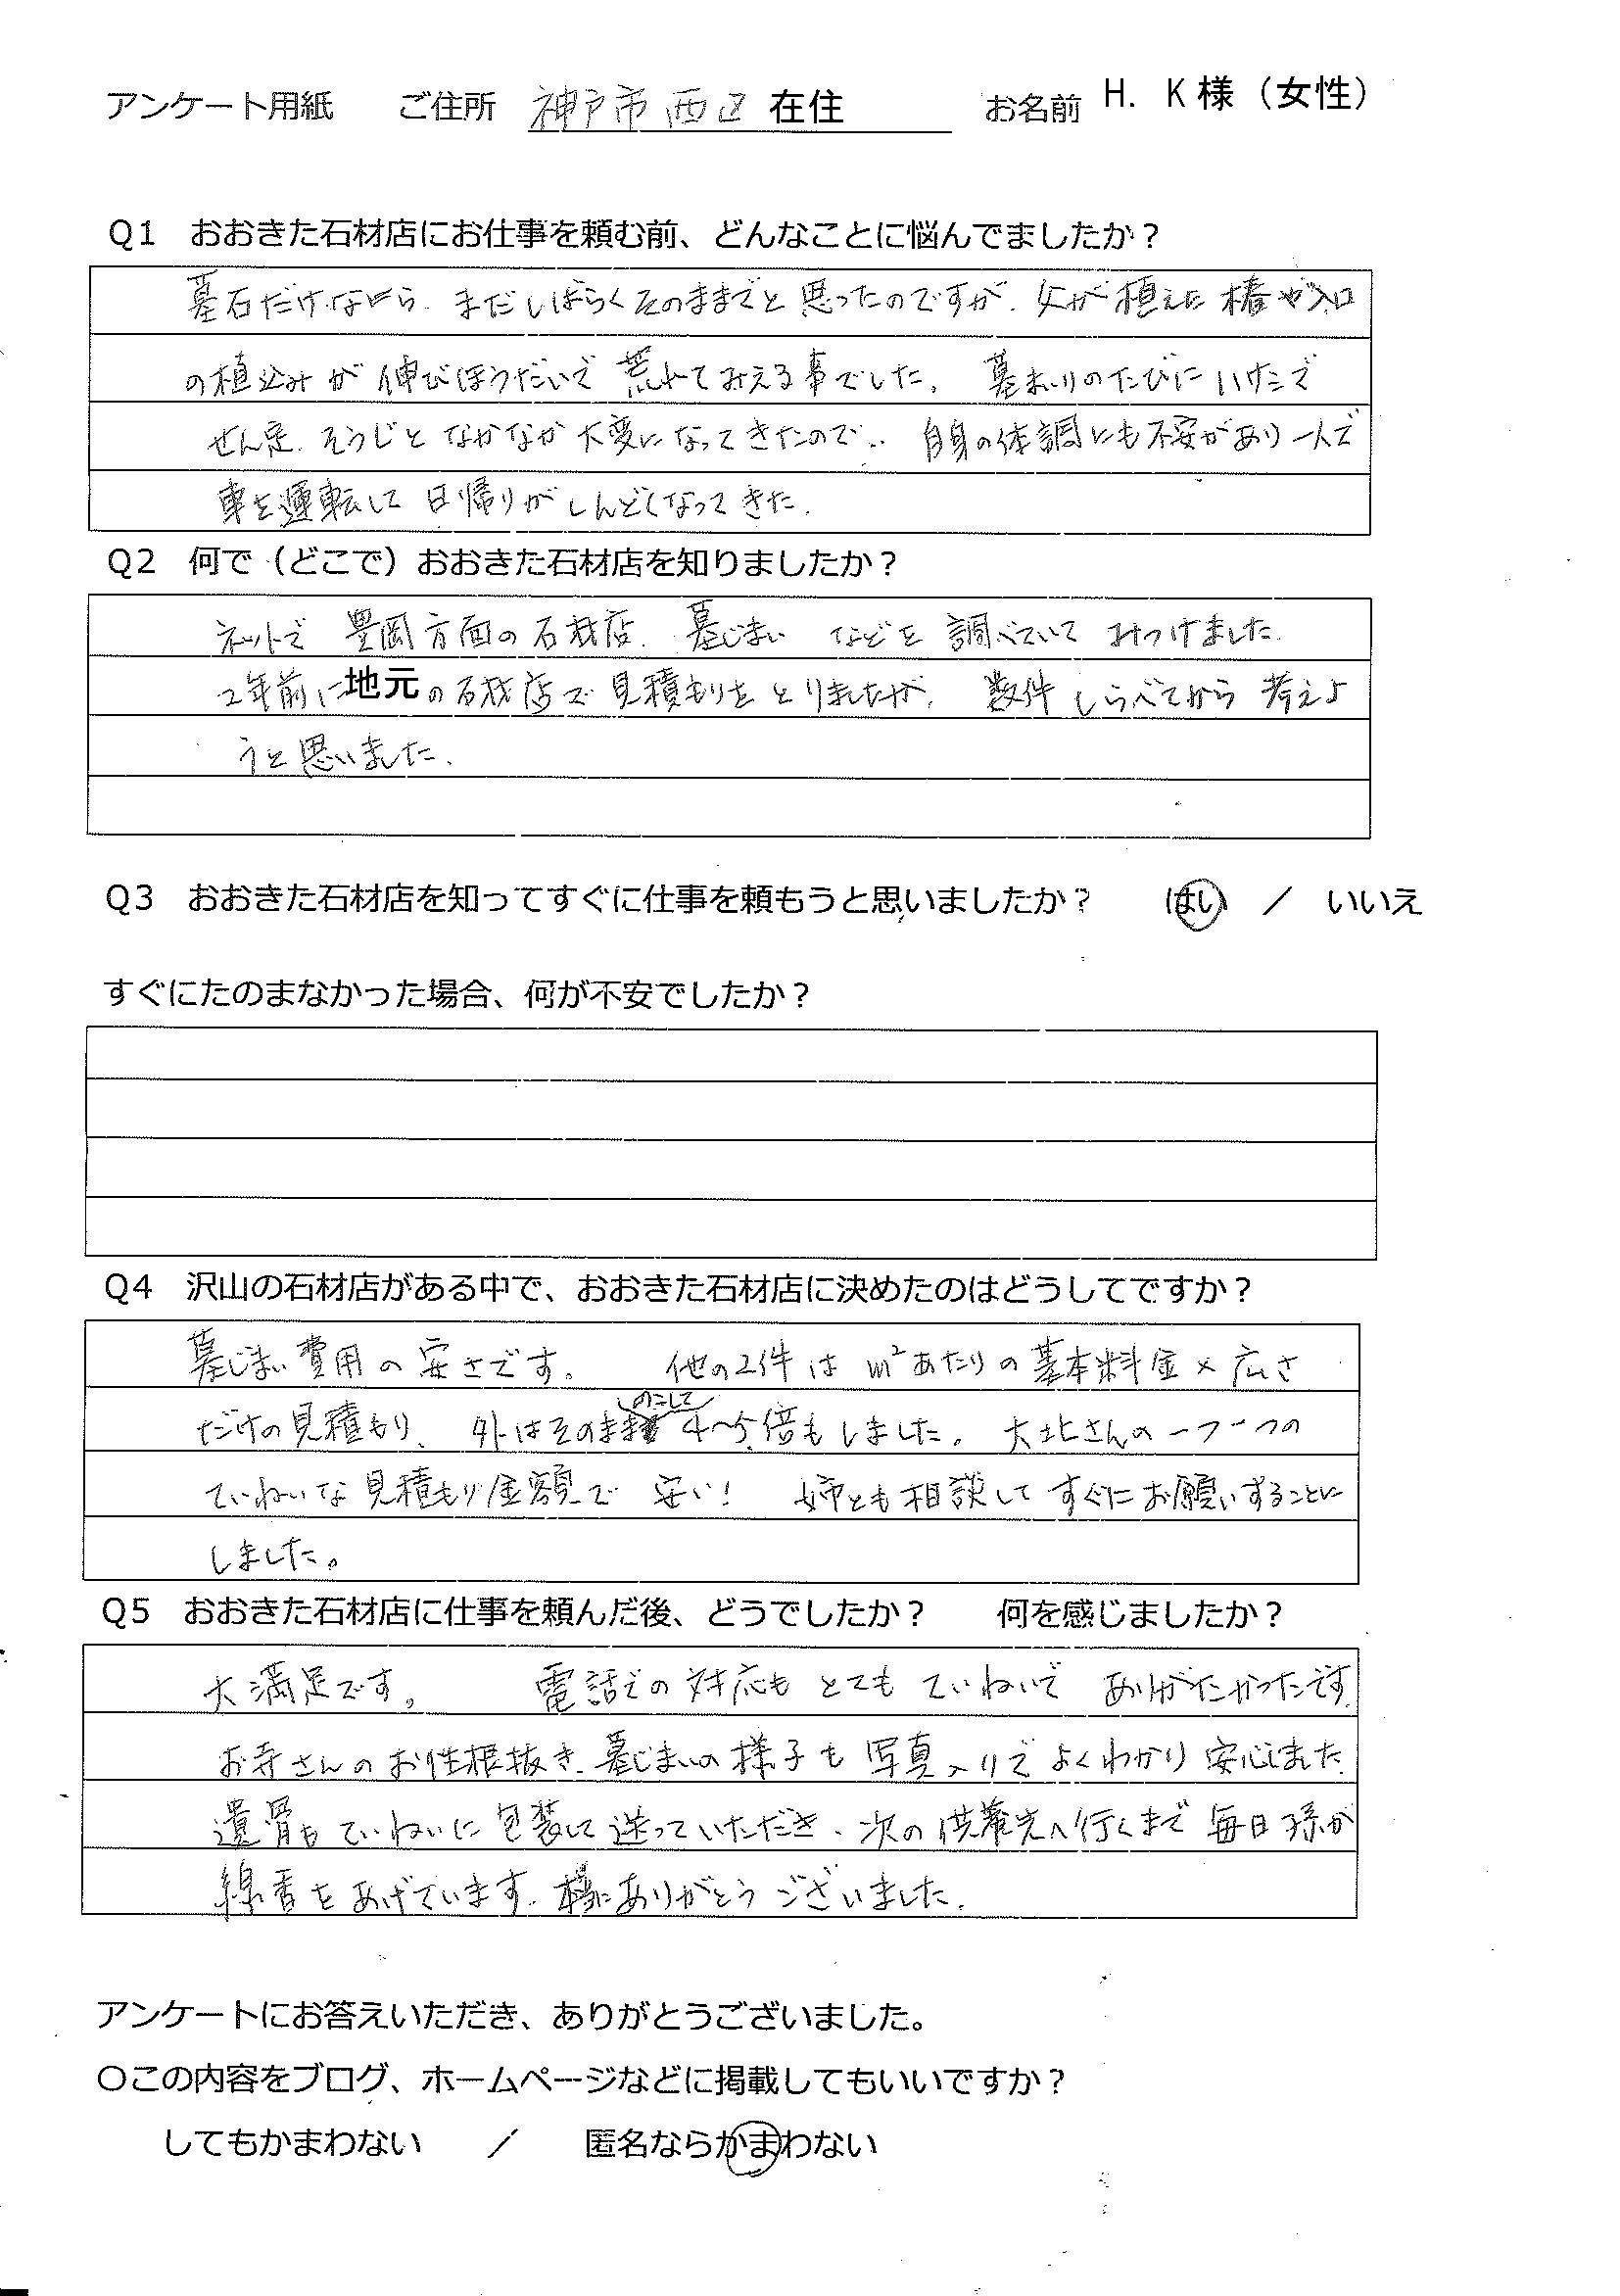 アンケート用紙　ご住所　神戸市西区 在住　お名前　H. K様（女性）
Q1　おおきた石材店にお仕事を頼む前、どんなことに悩んでましたか？
墓石だけならら、まだしばらくそのままでと思ったのですが、父が植えた椿や入口
の植込みが伸びほうだいで荒れてみえる事でした。墓まいりのたびに
せん定、そうじとなかなか大変になってきたので‥ 自身の体調にも不安があり一人で
車を運転して日帰りがしんどくなってきた。
Q2　何で（どこで）おおきた石材店を知りましたか？
ネットで豊岡方面の石材店、墓じまいなどを調べていてみつけました。
2年前に地元の石材店で見積もりをとりましたが、数件しらべてから考えよ
うと思いました。
Q3　おおきた石材店を知ってすぐに仕事を頼もうと思いましたか？　はい　／　いいえ
すぐにたのまなかった場合、何が不安でしたか？
Q4　沢山の石材店がある中で、おおきた石材店に決めたのはどうしてですか？
墓じまい費用の安さです。他の2件は㎡あたりの基本料金×広さ
のこして
だけの見積もり、外はそのまま 4〜5倍もしました。大北さんの一つ一つの
ていねいな見積もり金額で安い！ 姉とも相談してすぐにお願いすることに
しました。
Q5　おおきた石材店に仕事を頼んだ後、どうでしたか？　何を感じましたか？
大満足です。電話での対応もとてもていねいでありがたかったです。
お寺さんのお性根抜き、墓じまいの様子も写真入りでよくわかり安心しました。
遺骨もていねいに包装して送っていただき、次の供養先へ行くまで毎日孫が
線香をあげています。本当にありがとうございました。
アンケートにお答えいただき、ありがとうございました。
〇この内容をブログ、ホームページなどに掲載してもいいですか？
してもかまわない　／　匿名ならかまわない